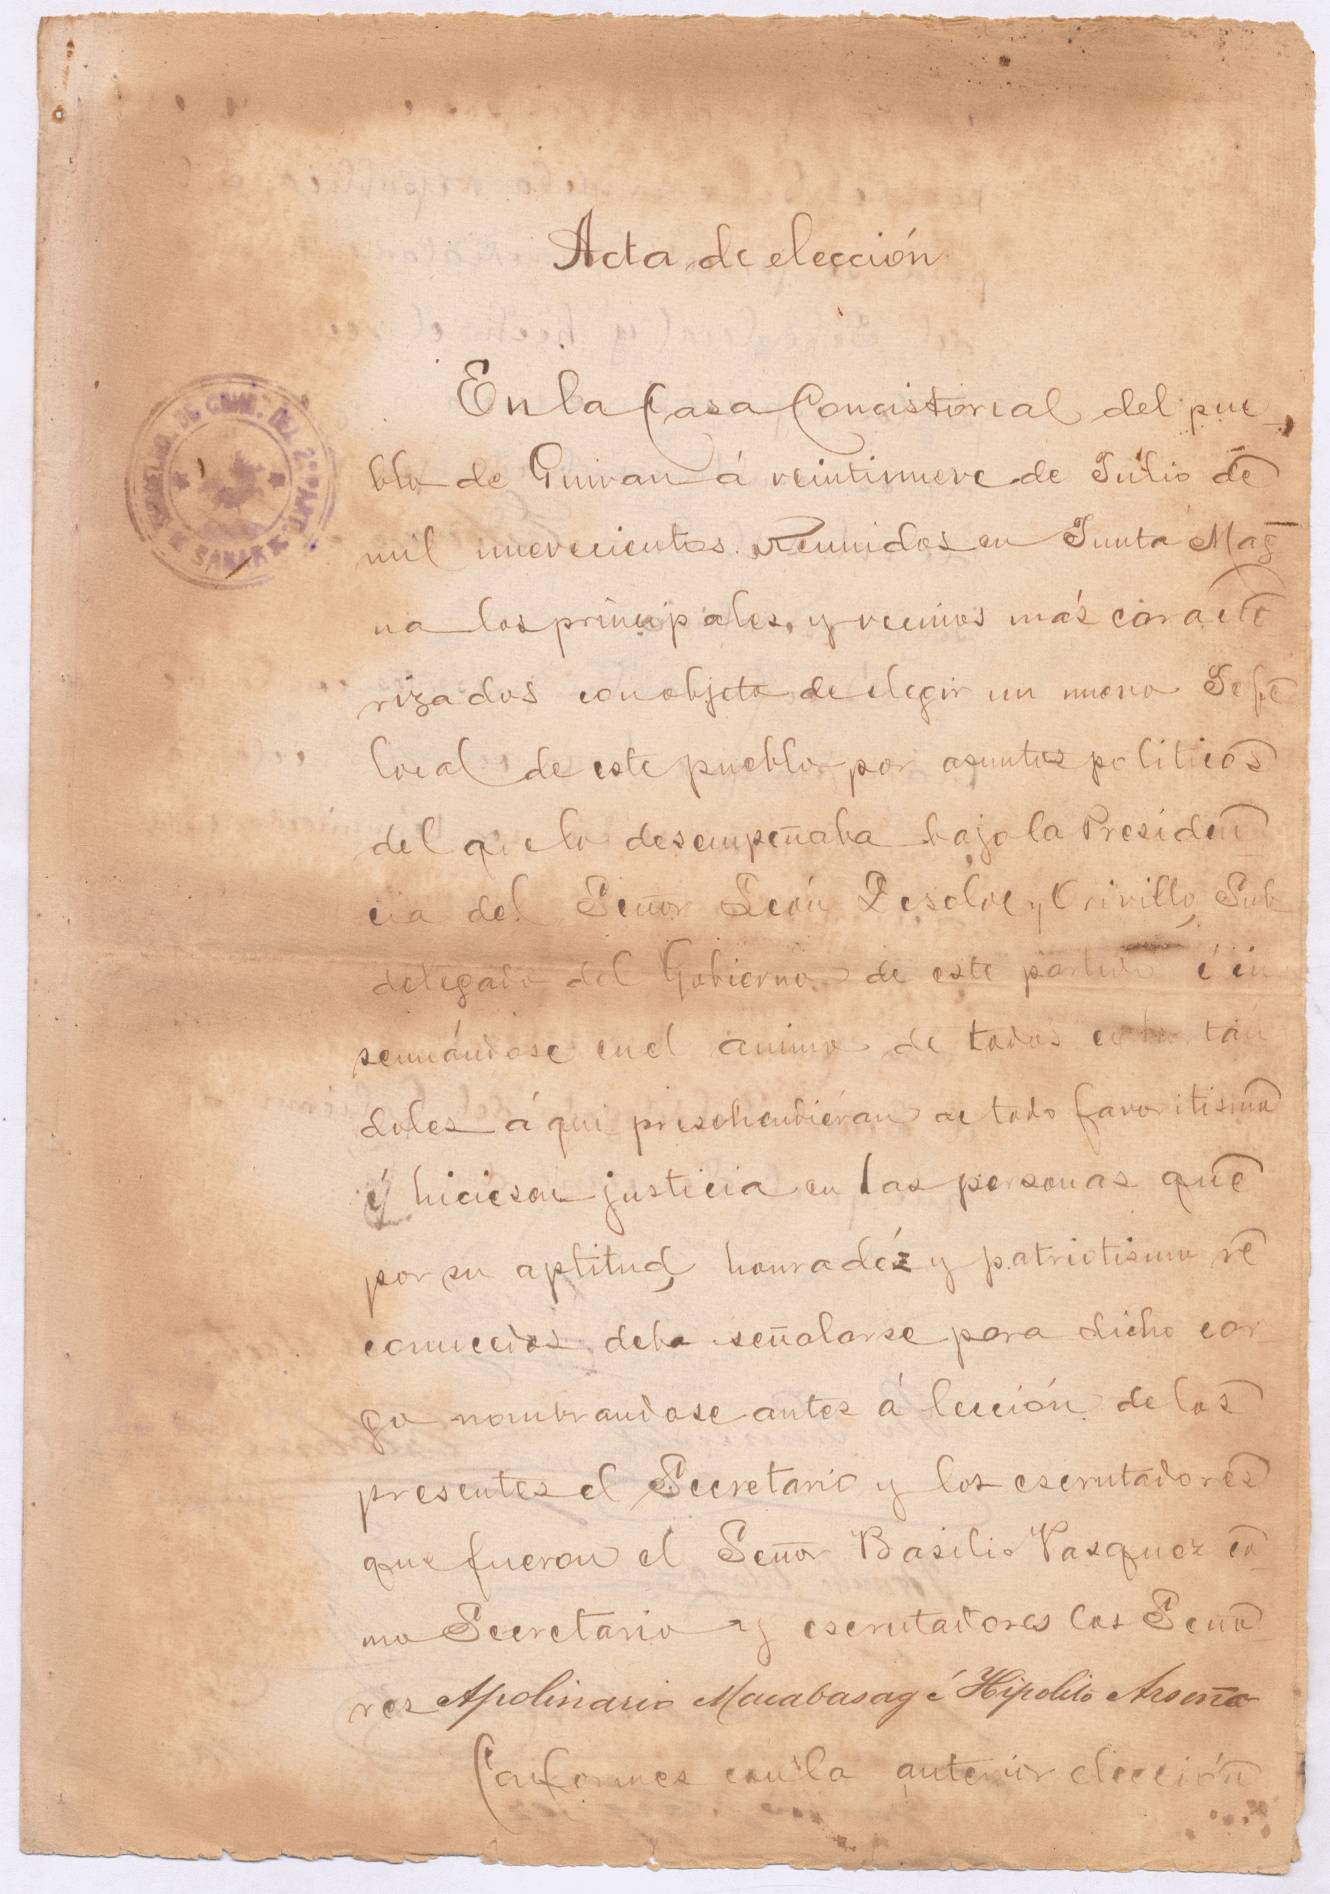 Acta de elección
En la Casa Concistorial del pue
blo de Guivan á veintinueve de Julio de
mil nuevecientos. Reunidos en Junta Mag
na los principales, y vecinos más caracte
rizados con objeto de elegir un nuevo Jefe
local de este pueblo por asuntos politicos
del que lo desempeñaba bajo la Presiden
cia del Señor León y Crivillo, Sub
delegado del Gobierno de este partido é in
sennándose en el animo de todos
doles á qui de todo favoritismo
é hiciesen justicia en las personas que
por su aptitud, honradéz y patriotismo re
conocidos deba señalarse para dicho car
go nombrandose antes á lección de los
presentes el Secretario y los escrutadores
que fueron el Señor Basilio Vasquez co
mo Secretario y escrutadores los Seño
res Apolinario Macabasag é Hipolito Arseño
Conformes con la anterior elección
DE GOB. DEL 2º PART.
SAMAR